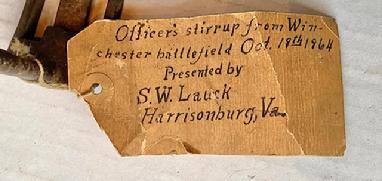 Officer's stirrup from Win-
chester battlefield Oct. 19th 1964
Presented by
S.W. Lauck
Harrisonburg, Va.